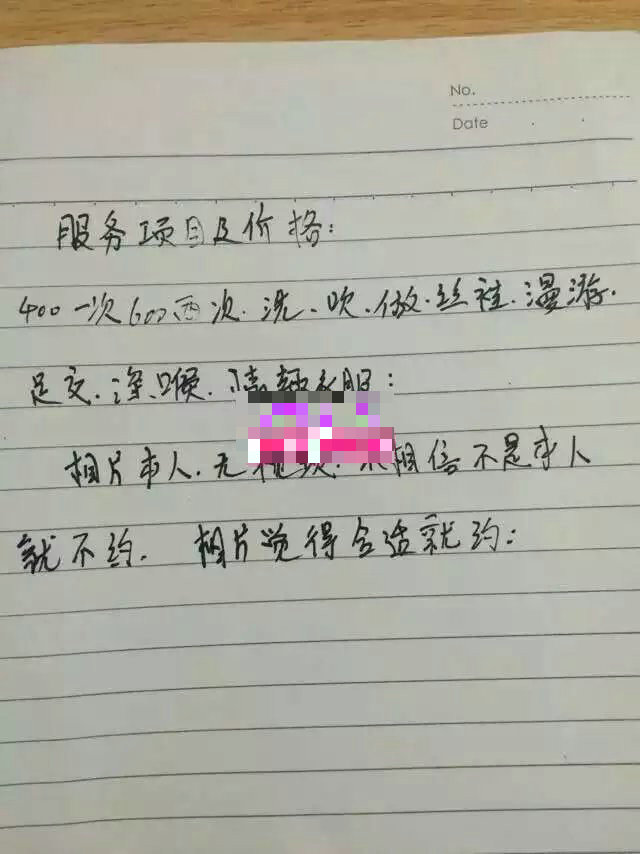 No.
Date
服务项目及价格:
400一次600两次.洗.吹.做.丝袜.漫游.
足交.深喉.情趣衣服:
相片本人.无视频.不相信不是本人
就不约. 相片觉得合适就约: